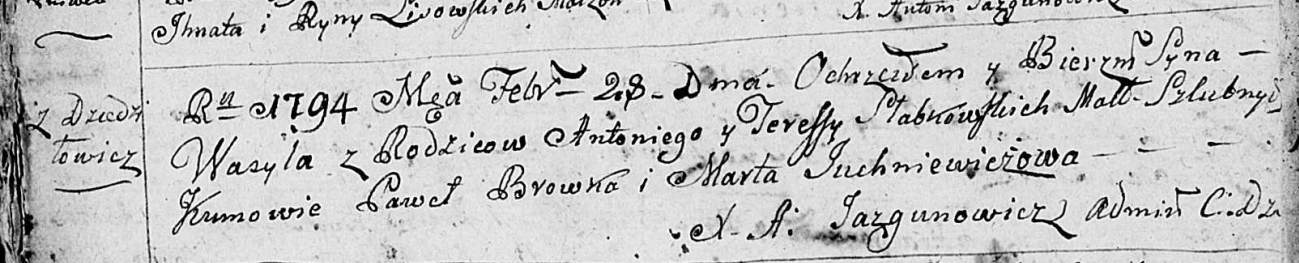 Ihnata i Ryny Lisowskich Małżon
X Antoni Jazgunowicz
z Dziedzi
łowicz
Rꝫ 1794 Mca Febr 28 Dma Ochrzciłem y Bierzm Syna —
Wasyla z Rodzicow Antoniego y Teressy Słabkowskich Małż. Szlubnych
Kumowie Paweł Browka i Marta Juchniewiczowa — — —
X. A: Jazgunowicz Admin C: Dz